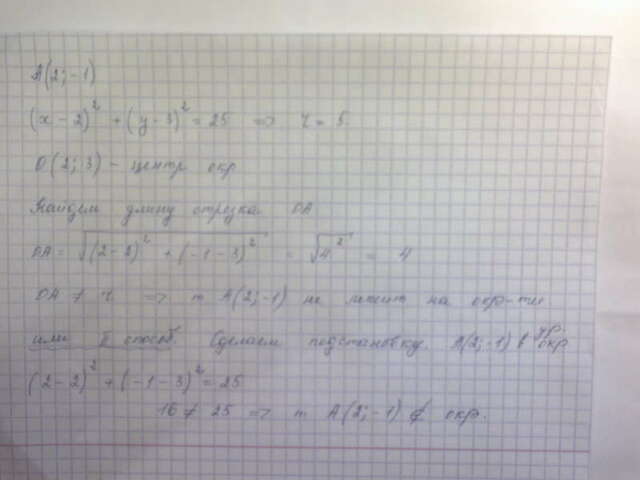 A(2;-1)
(x-2)² + (y-3)² = 25 => r = 5.
O(2;3) - центр окр
Найдем длину отрезка OA
OA = √((2-2)² + (-1-3)²) = √4² = 4
OA ≠ r => т A(2;-1) не лежит на окр-ти
или II способ. Сделаем подстановку. A(2;-1) в ур. окр
(2-2)² + (-1-3)² = 25
16 ≠ 25 => т A(2;-1) ∉ окр.